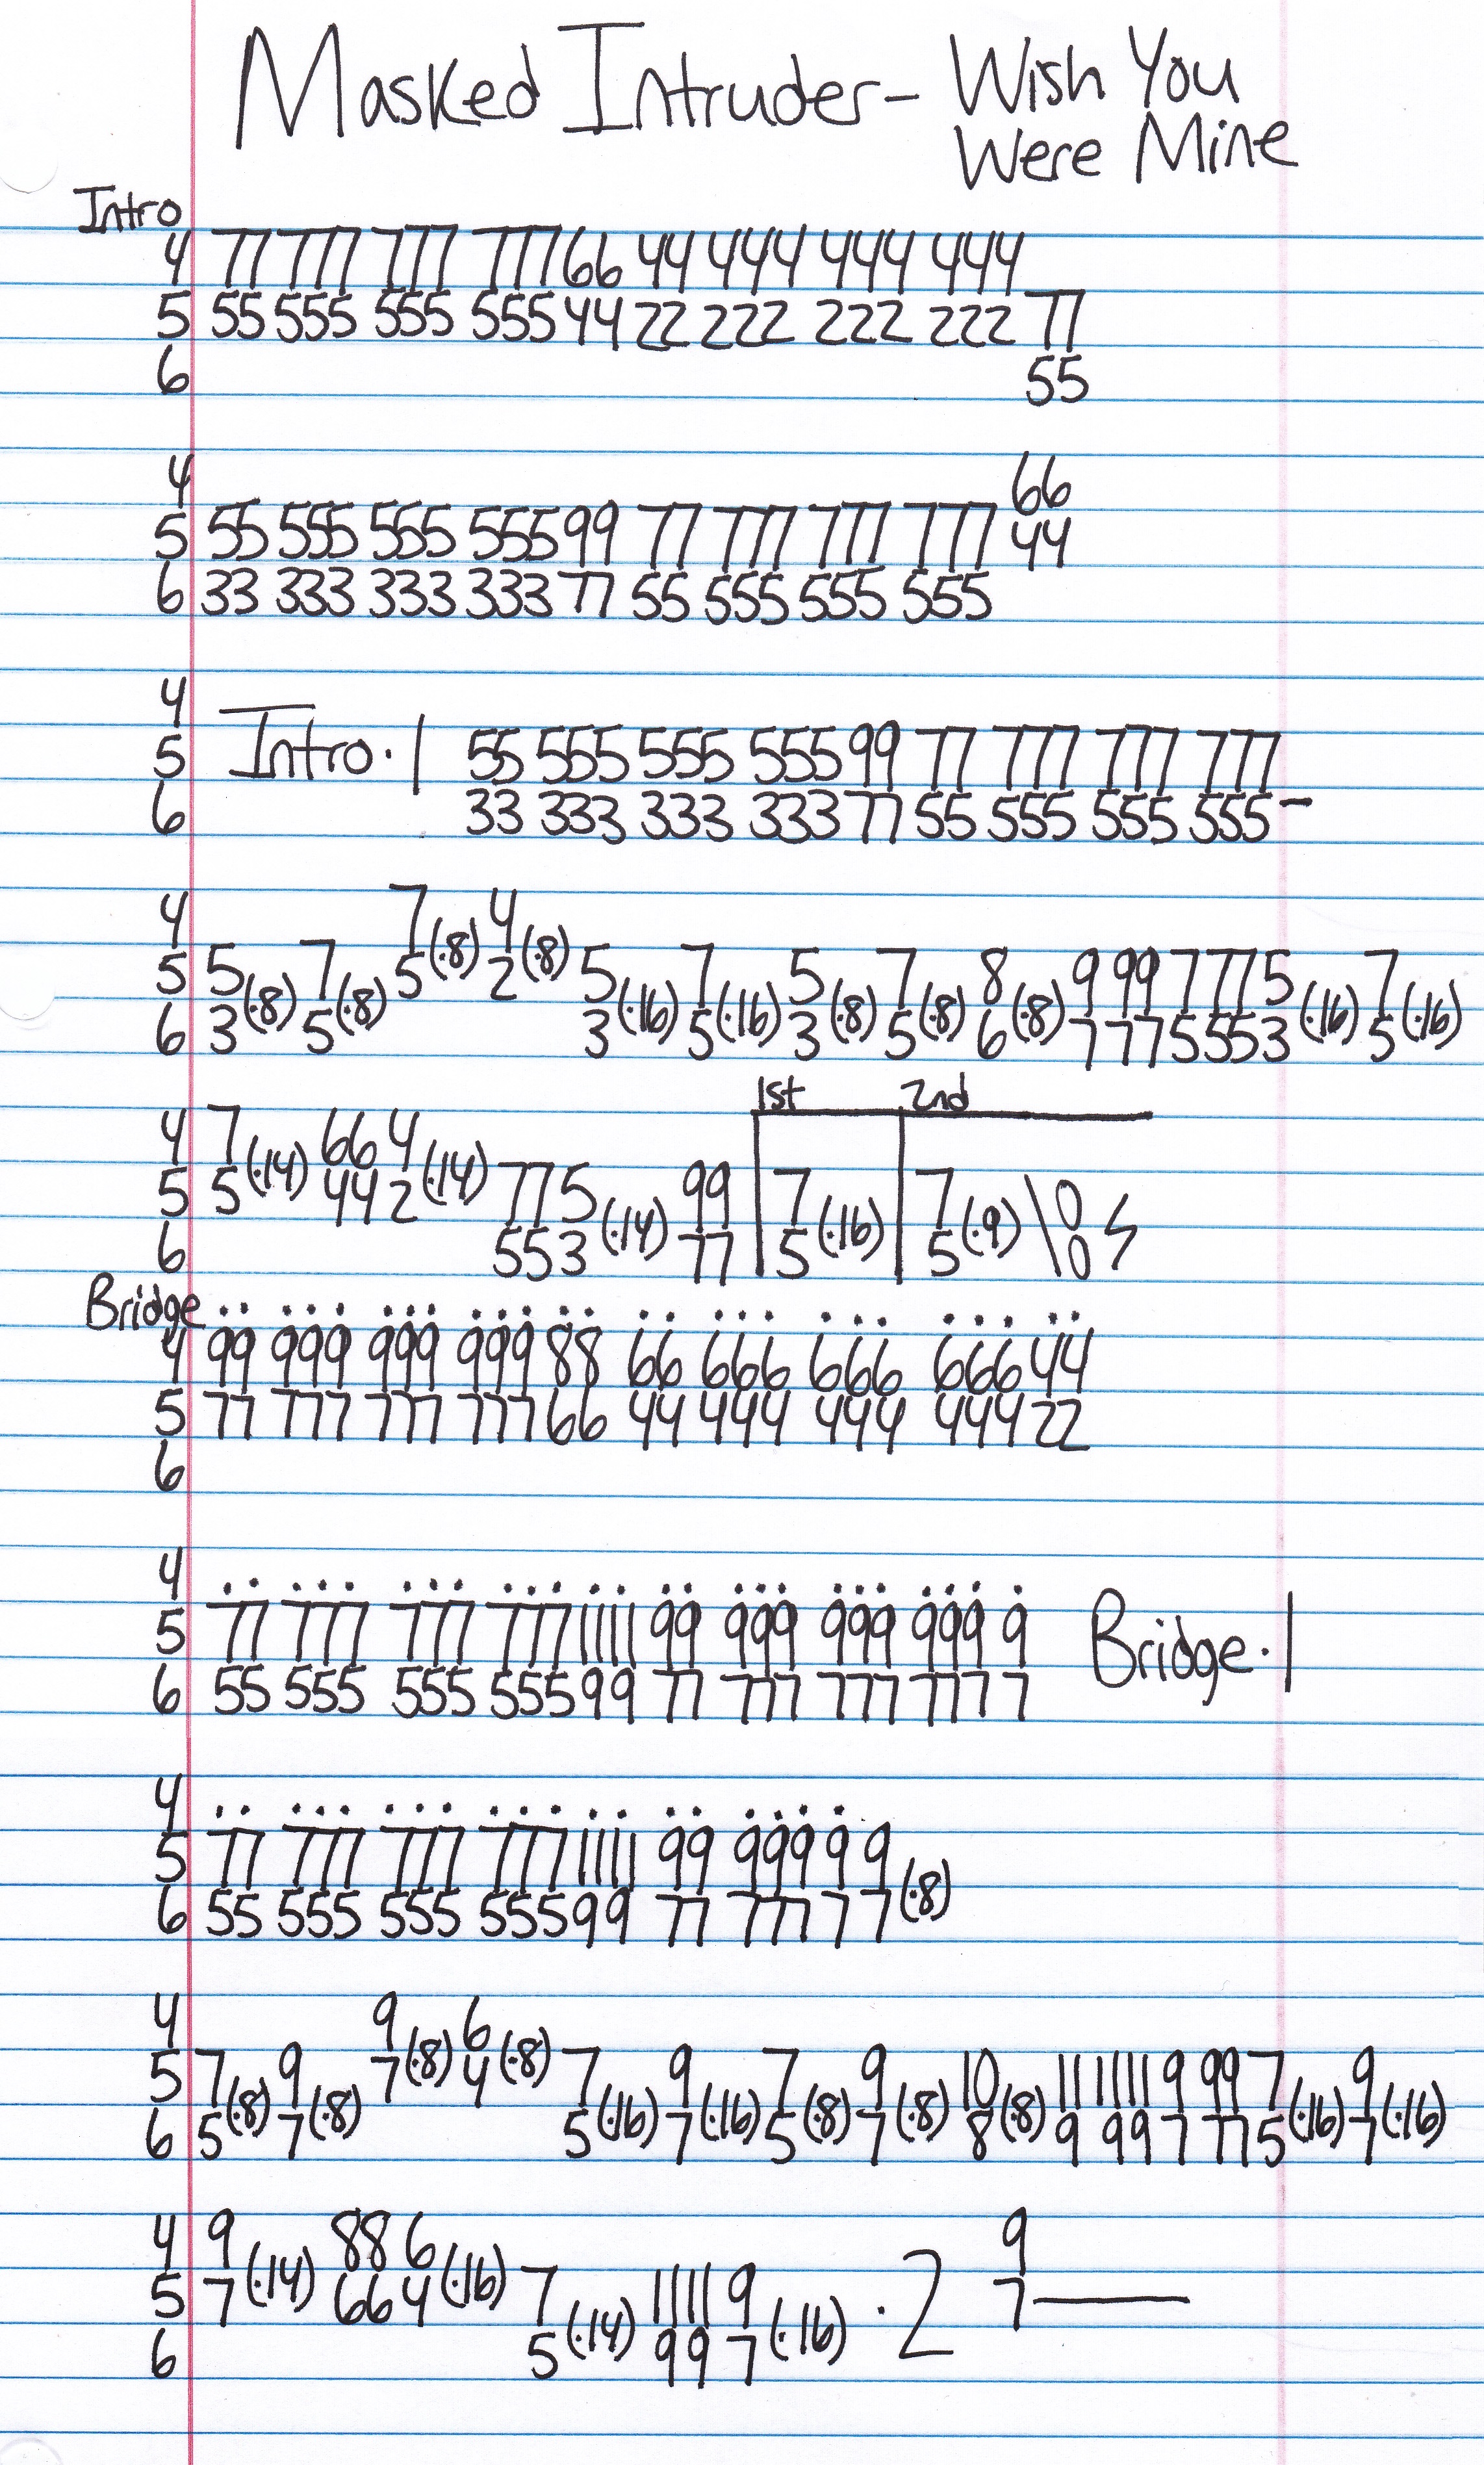 Masked Intruder - Wish You
Were Mine
Intro
4 77 777 777 77766 44 444 444 444
5 55 555 555 55544 22 222 222 222 77
6 55
4 66
5 55 555 555 55599 77 777 777 777 44
6 33 333 333 33377 55 555 555 555
4
5 Intro·1 55 555 555 55599 77 777 777 777
6 33 333 333 33377 55 555 555 555-
4 7(·8) 4(·8)
5 5(·8) 7(·8) 5 2 5(·16) 7(·16) 5(·8) 7(·8) 8(·8) 9 99 7 77 5(·16) 7(·16)
6 3 5 3 5 3 5 6 7 77 5 55 3 5
1st 2nd
4 7(·14) 66 4(·14)
5 5 44 2 77 5(·14) 99 7(·16) 7(·9) \0
6 55 3 77 5 5 0
Bridge
4 99 999 999 999 88 66 666 666 666 44
5 77 777 777 777 66 44 444 444 444 22
6
4
5 77 777 777 777 1111 99 999 999 999 9 Bridge·1
6 55 555 555 555 99 77 777 777 777 7
4
5 77 777 777 777 1111 99 999 9 9(·8)
6 55 555 555 555 99 77 777 7 7
4 9(·8) 6(·8)
5 7(·8) 9(·8) 7 4 7(·16) 9(·16) 7(·8) 9(·8) 10(·8) 11 1111 9 99 7(·16) 9(·16)
6 5 7 5 7 5 7 8 9 99 7 77 5 7
4 9(·14) 88 6(·16) 9
5 7 66 4 7(·14) 1111 9(·16) ·2 7—
6 5 99 7